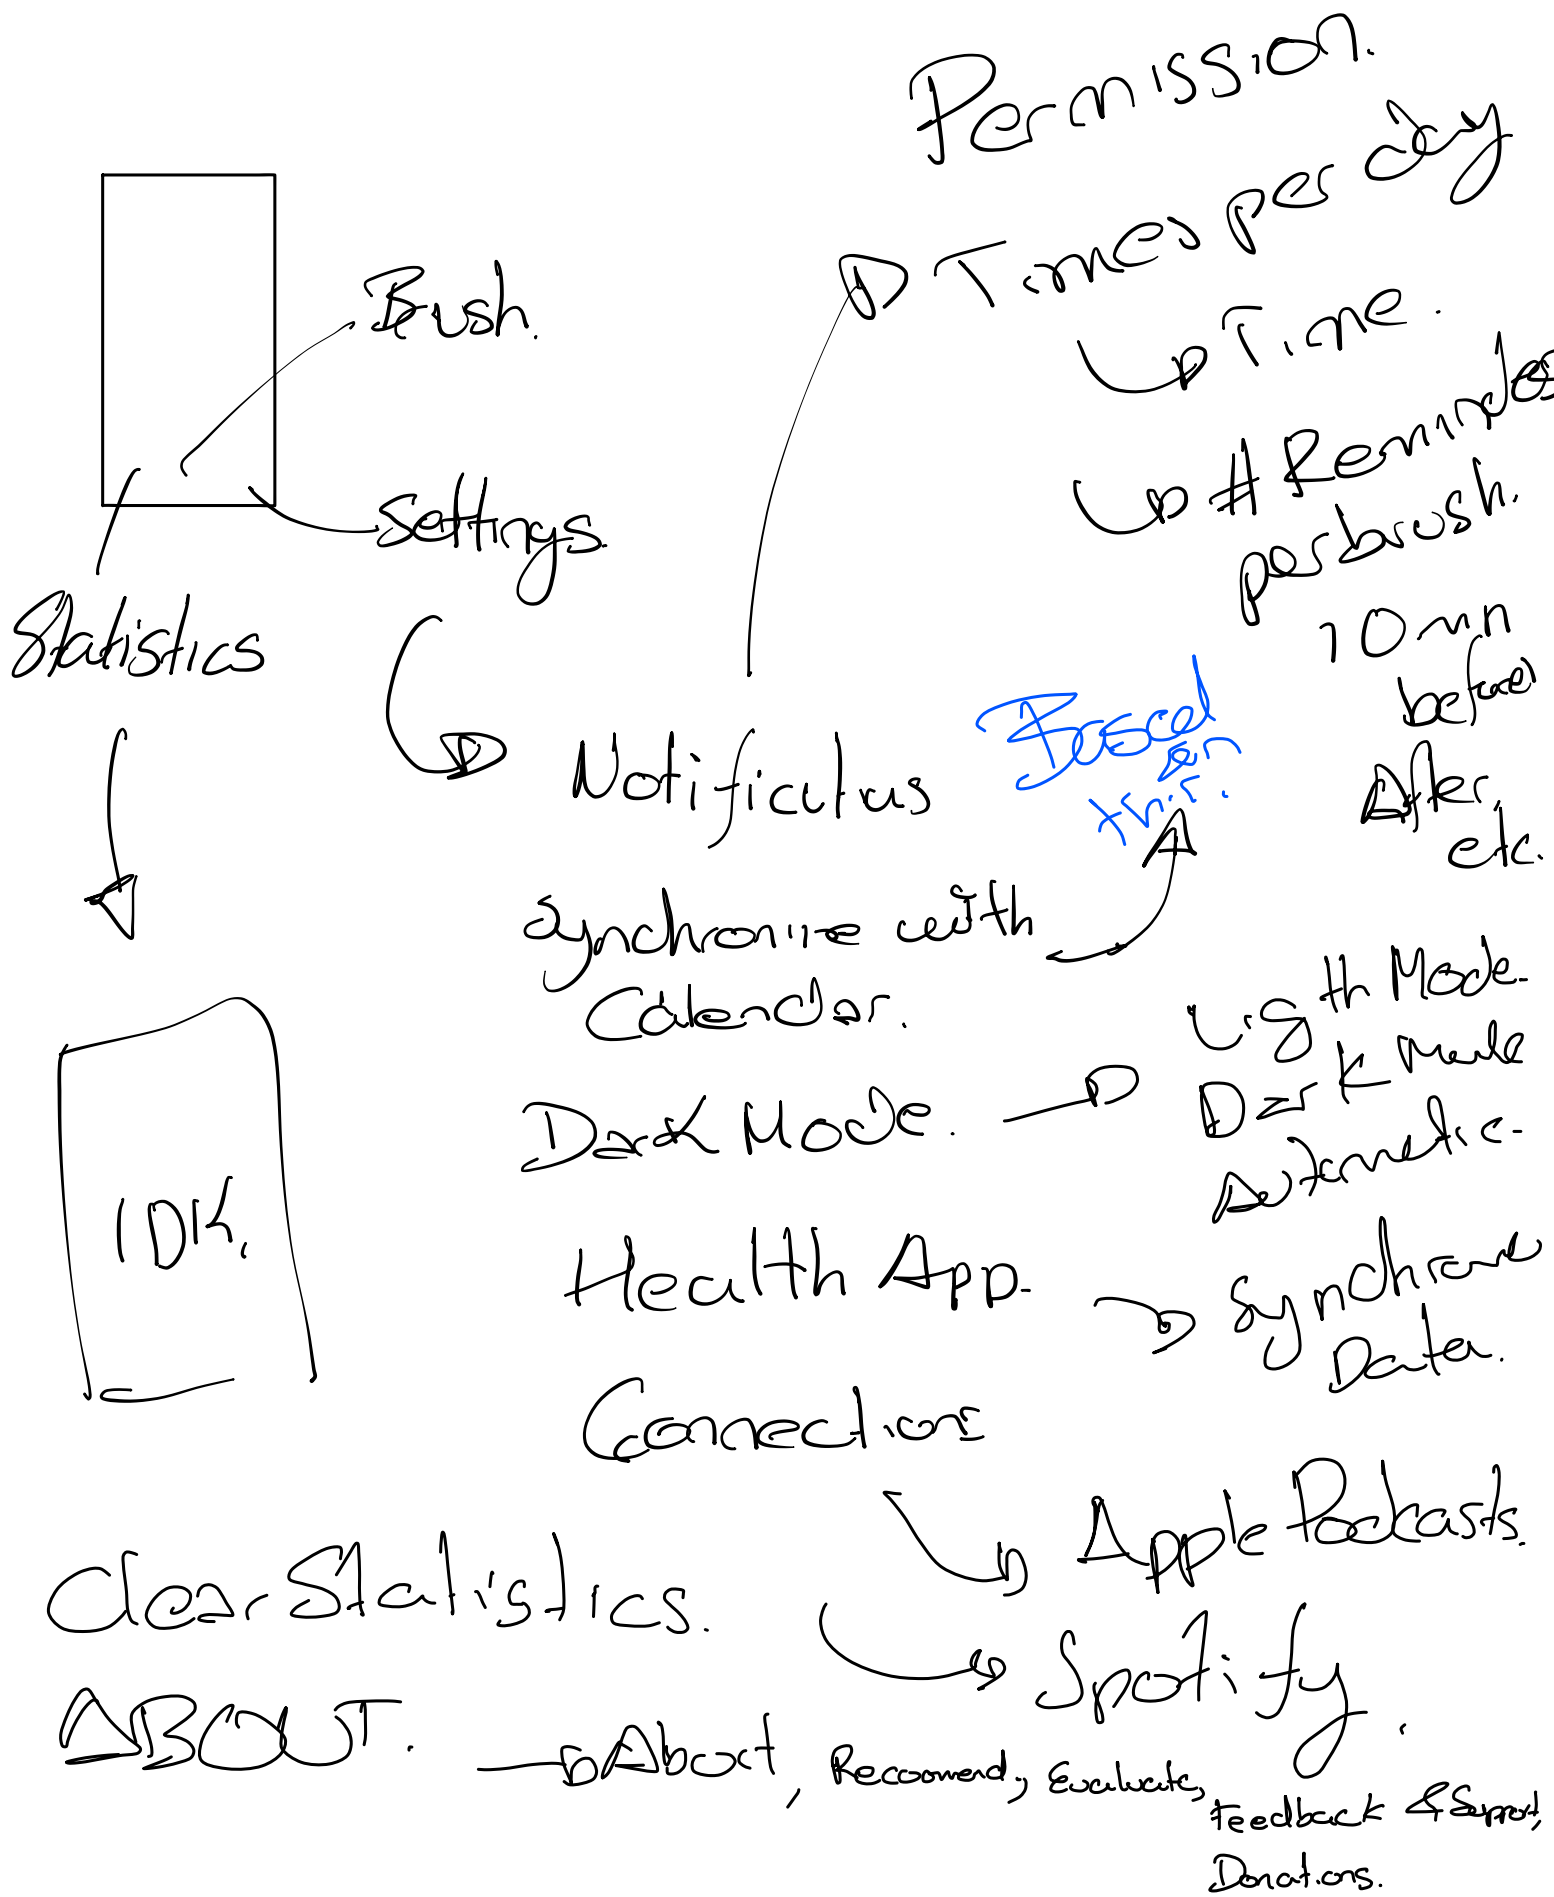 Permission.
Times per day
Time.
# Reminders
per brush.
10 min
before
After,
etc.
Brush.
Settings.
Statistics
Notifications
Based
on
this.
Synchronize with
Calendar.
Dark Mode.
Ligth Mode.
Dark Mode
Automatic.
IDK.
Health App.
Synchronize
Data.
Connections
Apple Podcasts.
Spotify.
Clear Statistics.
ABOUT.
About, Recoomend, Evaluate,
Feedback & Support,
Donations.